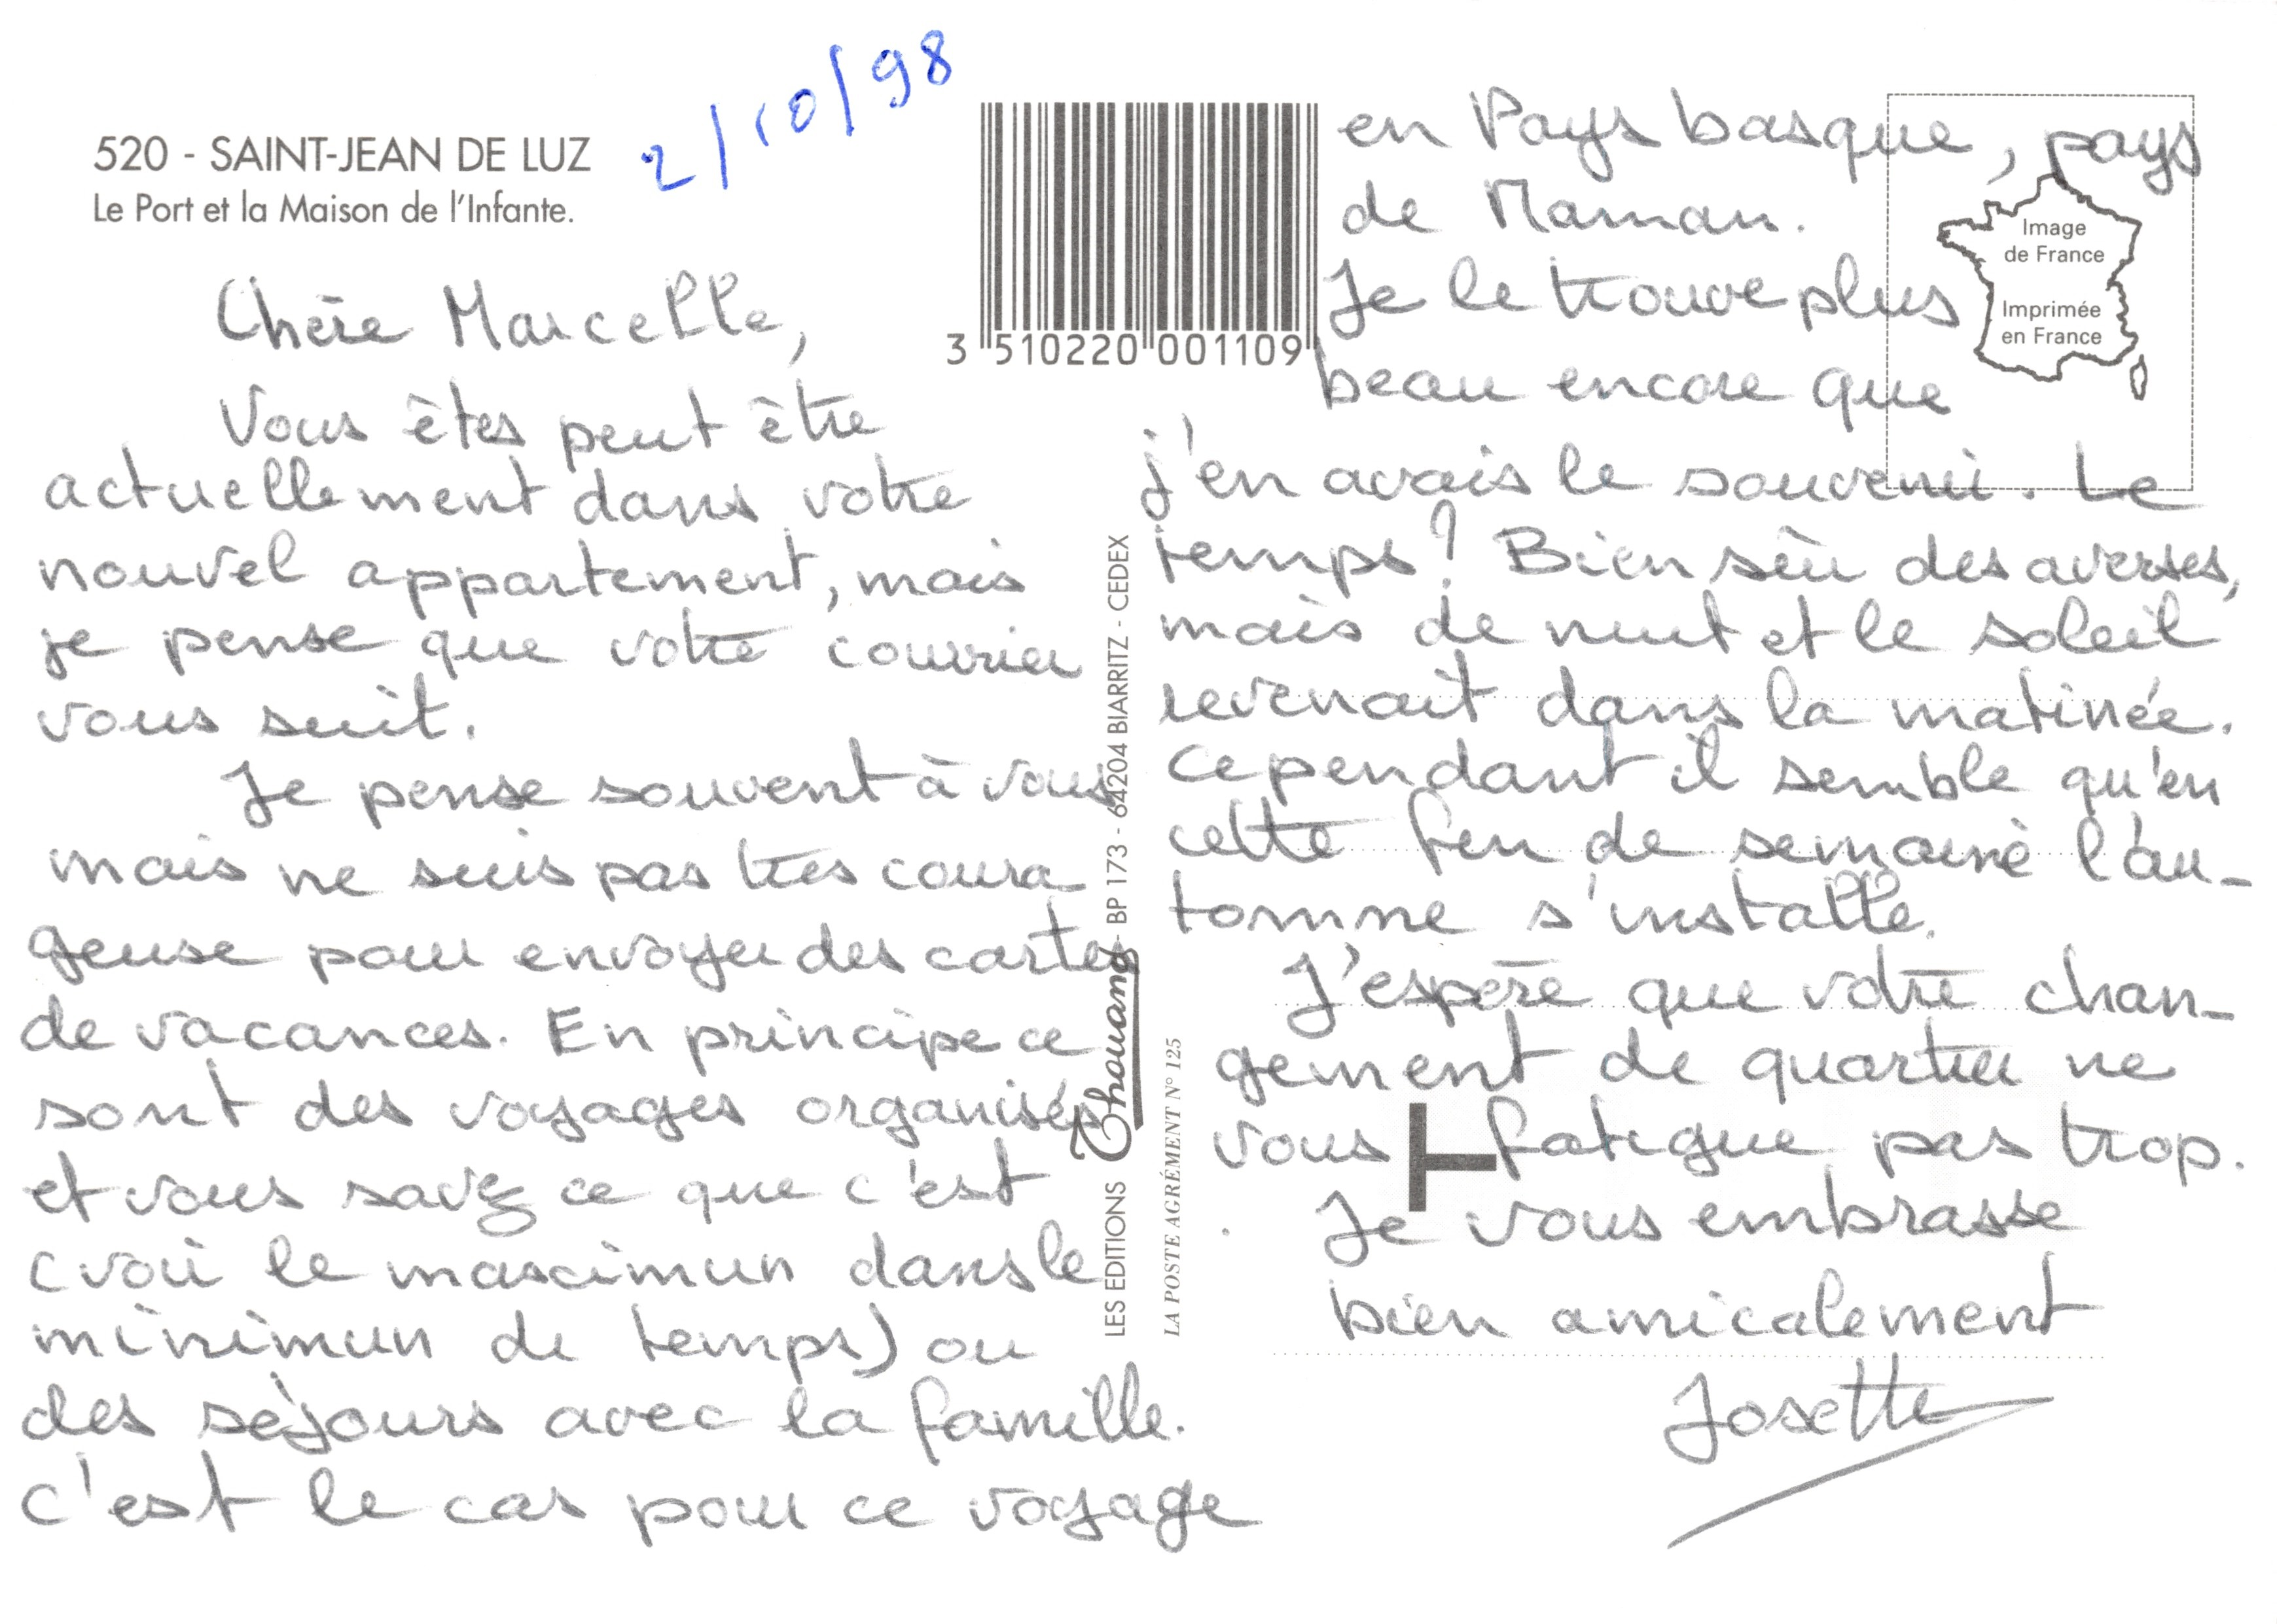 520 - SAINT-JEAN DE LUZ
Le Port et la Maison de l'Infante.
2/10/98
3 510220 001109
Chère Marcelle,
Vous êtes peut être
actuellement dans votre
nouvel appartement, mais
je pense que votre courrier
vous suit.
Je pense souvent à vous
mais ne suis pas très coura
geuse pour envoyer des cartes
de vacances. En principe ce
sont des voyages organisés
et vous savez ce que c'est
(voir le maximun dans le
minimun de temps) ou
des séjours avec la famille.
c'est le cas pour ce voyage
LES EDITIONS Thouand - BP 173 - 64204 BIARRITZ - CEDEX
LA POSTE AGRÉMENT N° 125
en Pays basque, pays
de Maman.
Je le trouve plus
beau encore que
j'en avais le souvenir. Le
temps? Bien sûr des averses,
mais de nuit et le soleil
revenait dans la matinée.
Cependant il semble qu'en
cette fin de semaine l'au-
tomne s'installe.
J'espère que votre chan-
gement de quartier ne
vous fatigue pas trop.
T
Je vous embrasse
bien amicalement
Josette
Image
de France
Imprimée
en France